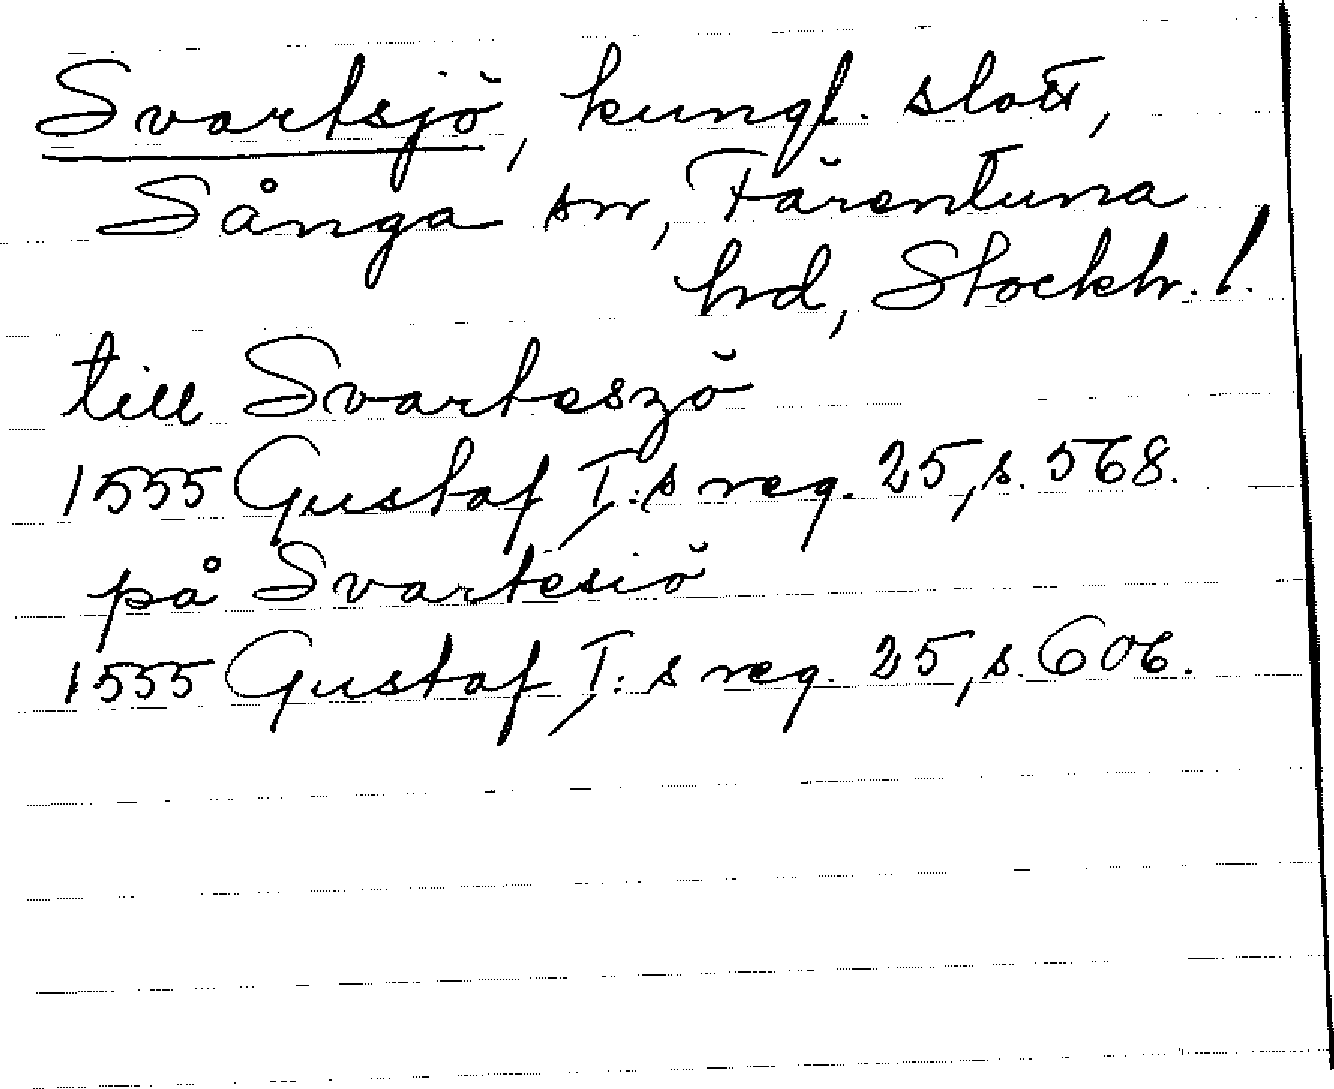 Svartsjö, kungl. slott,
Sånga sn, Färentuna
hrd, Stockh. l.
till Svarteszö
1555 Gustaf I:s reg. 25, s. 568.
på Svartesiö
1555 Gustaf I:s reg. 25, s. 606.